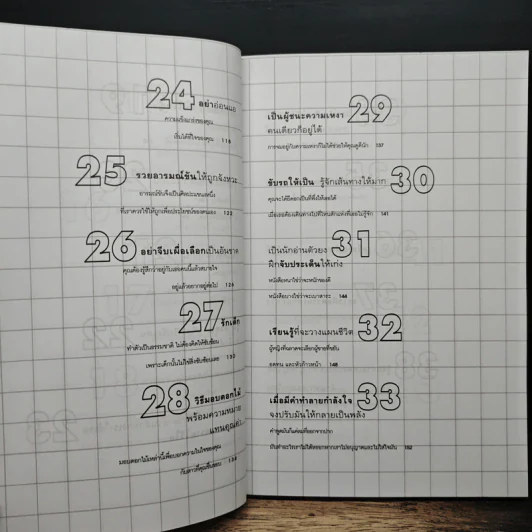 24 อย่าอ่อนแอ
ความแข็งแกร่งของคุณ
เริ่มได้ที่ใจของคุณ 118
25 รวยอารมณ์ขันให้ถูกจังหวะ
อารมณ์ขันจึงเป็นศิลปะแขนงหนึ่ง
ที่เราควรใช้ให้ถูกเพื่อประโยชน์ของตนเอง 122
26 อย่าจีบเผื่อเลือกเป็นอันขาด
คุณต้องรู้สึกว่าอยู่กับเธอคนนี้แล้วสบายใจ
อยู่แล้วอยากอยู่ต่อไป 126
27 รักเด็ก
ทำตัวเป็นธรรมชาติ ไม่ต้องคิดให้ซับซ้อน
เพราะเด็กนั้นไม่ใช่สิ่งซับซ้อนเลย 130
28 วิธีมอบดอกไม้
พร้อมความหมาย
แทนคุณค่า
มอบดอกไม้เหล่านี้เพื่อบอกความในใจของคุณ
กับสาวที่คุณชื่นชอบ
เป็นผู้ชนะความเหงา 29
คนเดียวก็อยู่ได้
การจมอยู่กับความเหงาก็ไม่ได้ช่วยให้คุณดูดีนัก 137
ขับรถให้เป็น รู้จักเส้นทางให้มาก 30
คุณจะได้มีดอกเป็นที่พึ่งให้เธอได้
เมื่อเธอต้องเดินทางไปที่ไหนสักแห่งที่เธอไม่รู้จัก 141
31
เป็นนักอ่านตัวยง
ฝึกจับประเด็นให้เก่ง
หนังสือหนาใช่ว่าจะหนักสมองดี
หนังสือบางใช่ว่าจะเบาสาระ 144
เรียนรู้ที่จะวางแผนชีวิต 32
ผู้หญิงที่ฉลาดจะเลือกผู้ชายที่ขยัน
อดทน และหัวก้าวหน้า 148
เมื่อมีคำทำลายกำลังใจ 33
จงปรับมันให้กลายเป็นพลัง
คำพูดมันก็แค่ลมที่ออกจากปาก
มันทำอะไรเราไม่ได้หรอกหากเราไม่อนุญาตและไม่ใส่ใจมัน 152